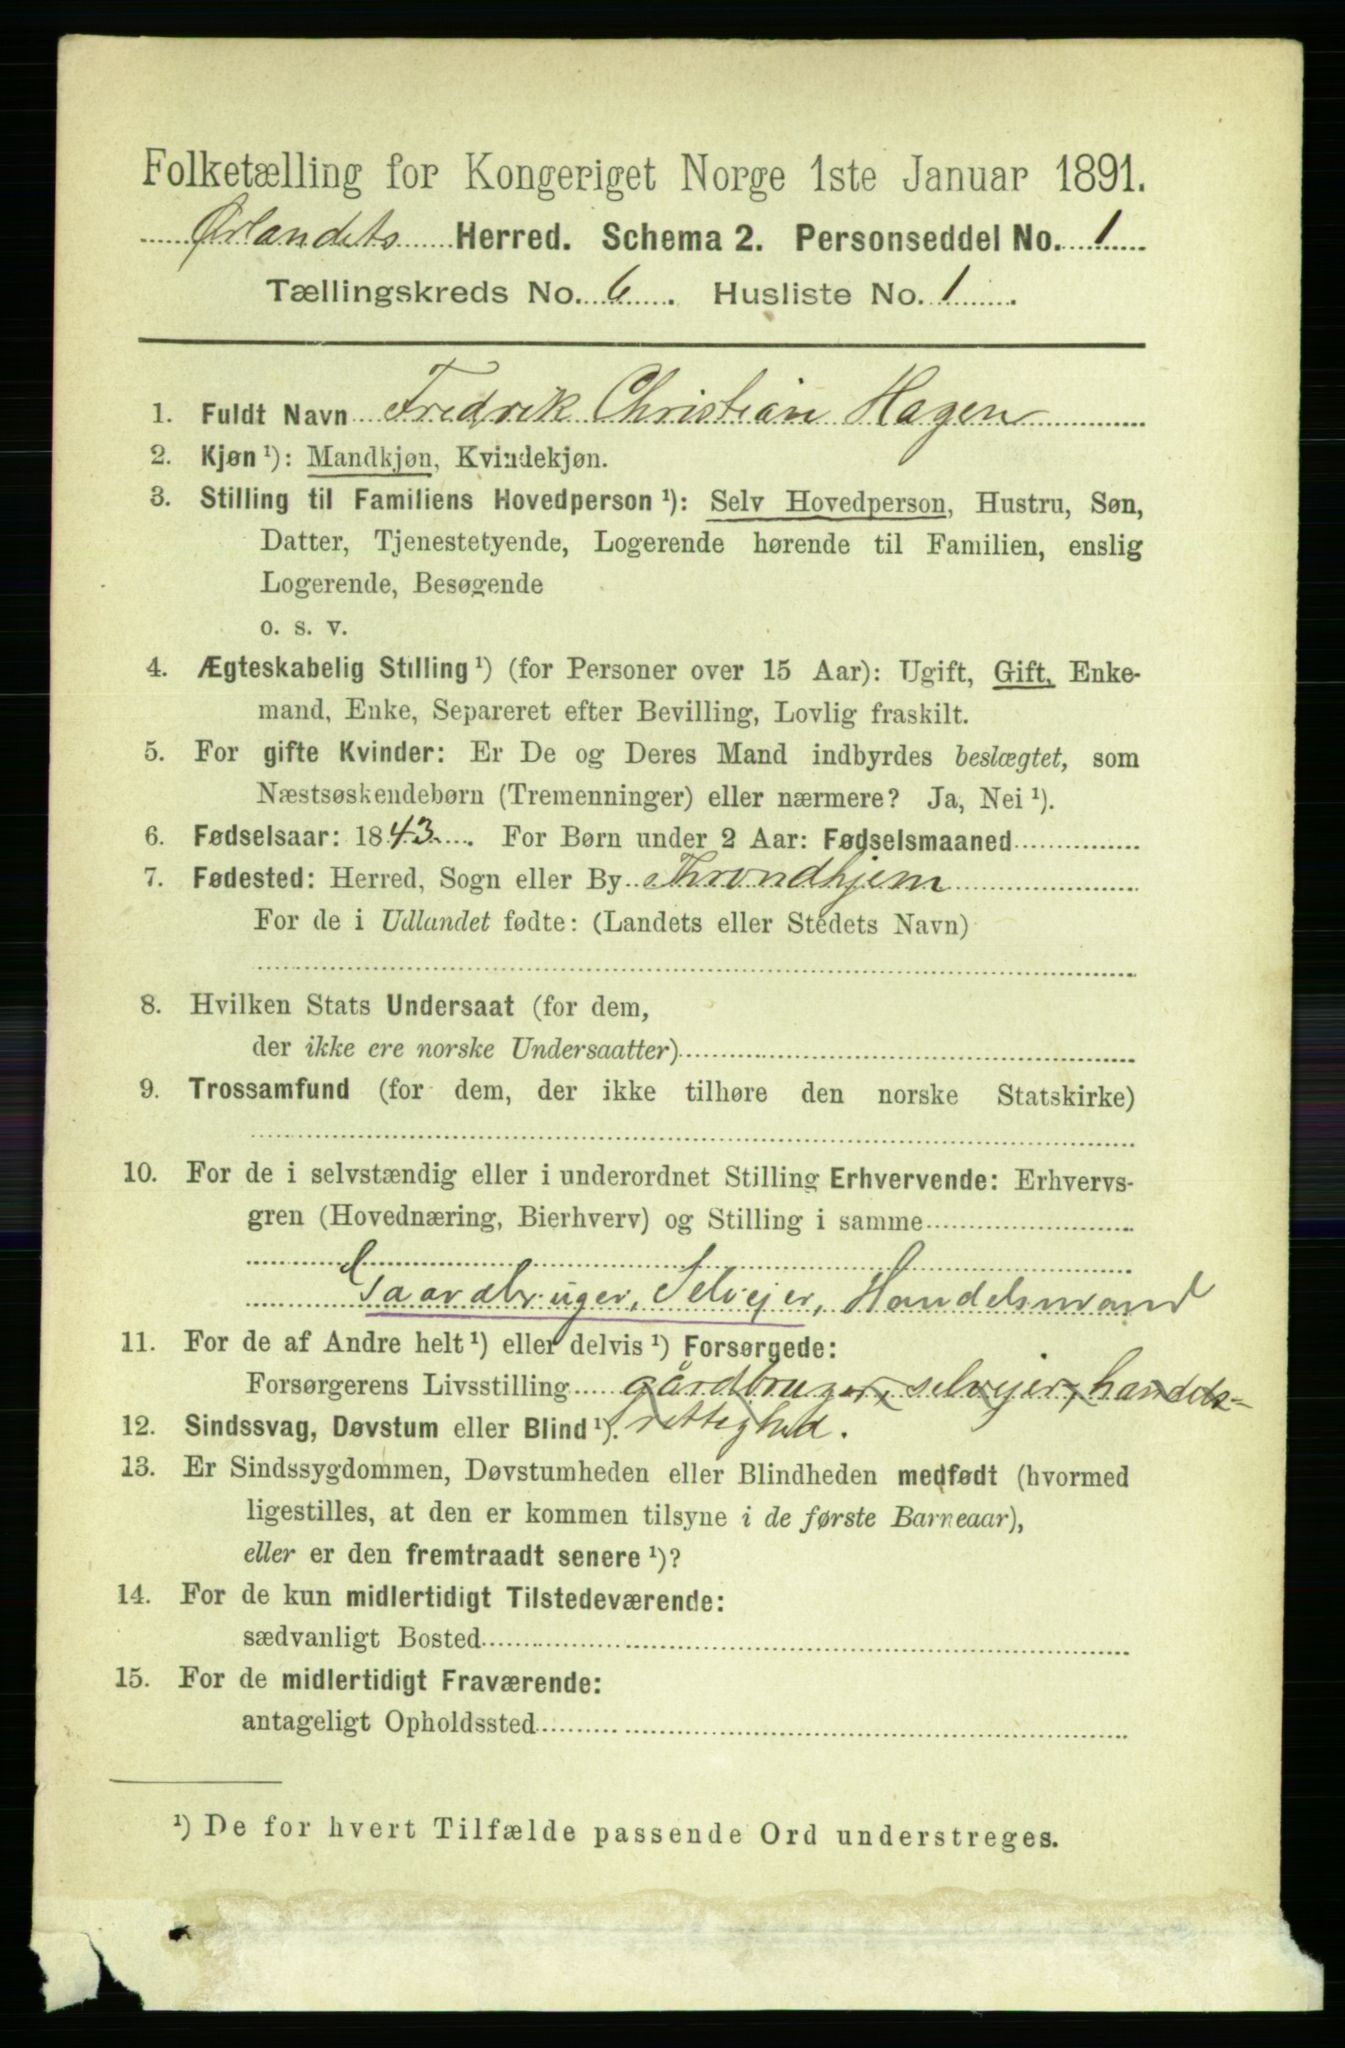 Folketælling for Kongeriget Norge 1ste Januar 1891.
Ørlandets Herred. Schema 2. Personseddel No. 1
Tællingskreds No. 6. Husliste No. 1.
1. Fuldt Navn Fredrik Christian Hagen
2. Kjøn ¹): Mandkjøn, Kvindekjøn.
3. Stilling til Familiens Hovedperson ¹): Selv Hovedperson, Hustru, Søn,
Datter, Tjenestetyende, Logerende hørende til Familien, enslig
Logerende, Besøgende
o. s. v.
4. Ægteskabelig Stilling ¹) (for Personer over 15 Aar): Ugift, Gift, Enke-
mand, Enke, Separeret efter Bevilling, Lovlig fraskilt.
5. For gifte Kvinder: Er De og Deres Mand indbyrdes beslægtet, som
Næstsøskendebørn (Tremenninger) eller nærmere? Ja, Nei ¹).
6. Fødselsaar: 1843. For Børn under 2 Aar: Fødselsmaaned
7. Fødested: Herred, Sogn eller By Throndhjem
For de i Udlandet fødte: (Landets eller Stedets Navn)
8. Hvilken Stats Undersaat (for dem,
der ikke ere norske Undersaatter)
9. Trossamfund (for dem, der ikke tilhøre den norske Statskirke)
10. For de i selvstændig eller i underordnet Stilling Erhvervende: Erhvervs-
gren (Hovednæring, Bierhverv) og Stilling i samme
Gaardbruger, Selvejer, Handelsmand
11. For de af Andre helt ¹) eller delvis ¹) Forsørgede:
Forsørgerens Livsstilling gårdbruger, selvejer, handels-
12. Sindssvag, Døvstum eller Blind ¹). rettighed.
13. Er Sindssygdommen, Døvstumheden eller Blindheden medfødt (hvormed
ligestilles, at den er kommen tilsyne i de første Barneaar),
eller er den fremtraadt senere ¹)?
14. For de kun midlertidigt Tilstedeværende:
sædvanligt Bosted
15. For de midlertidigt Fraværende:
antageligt Opholdssted
¹) De for hvert Tilfælde passende Ord understreges.